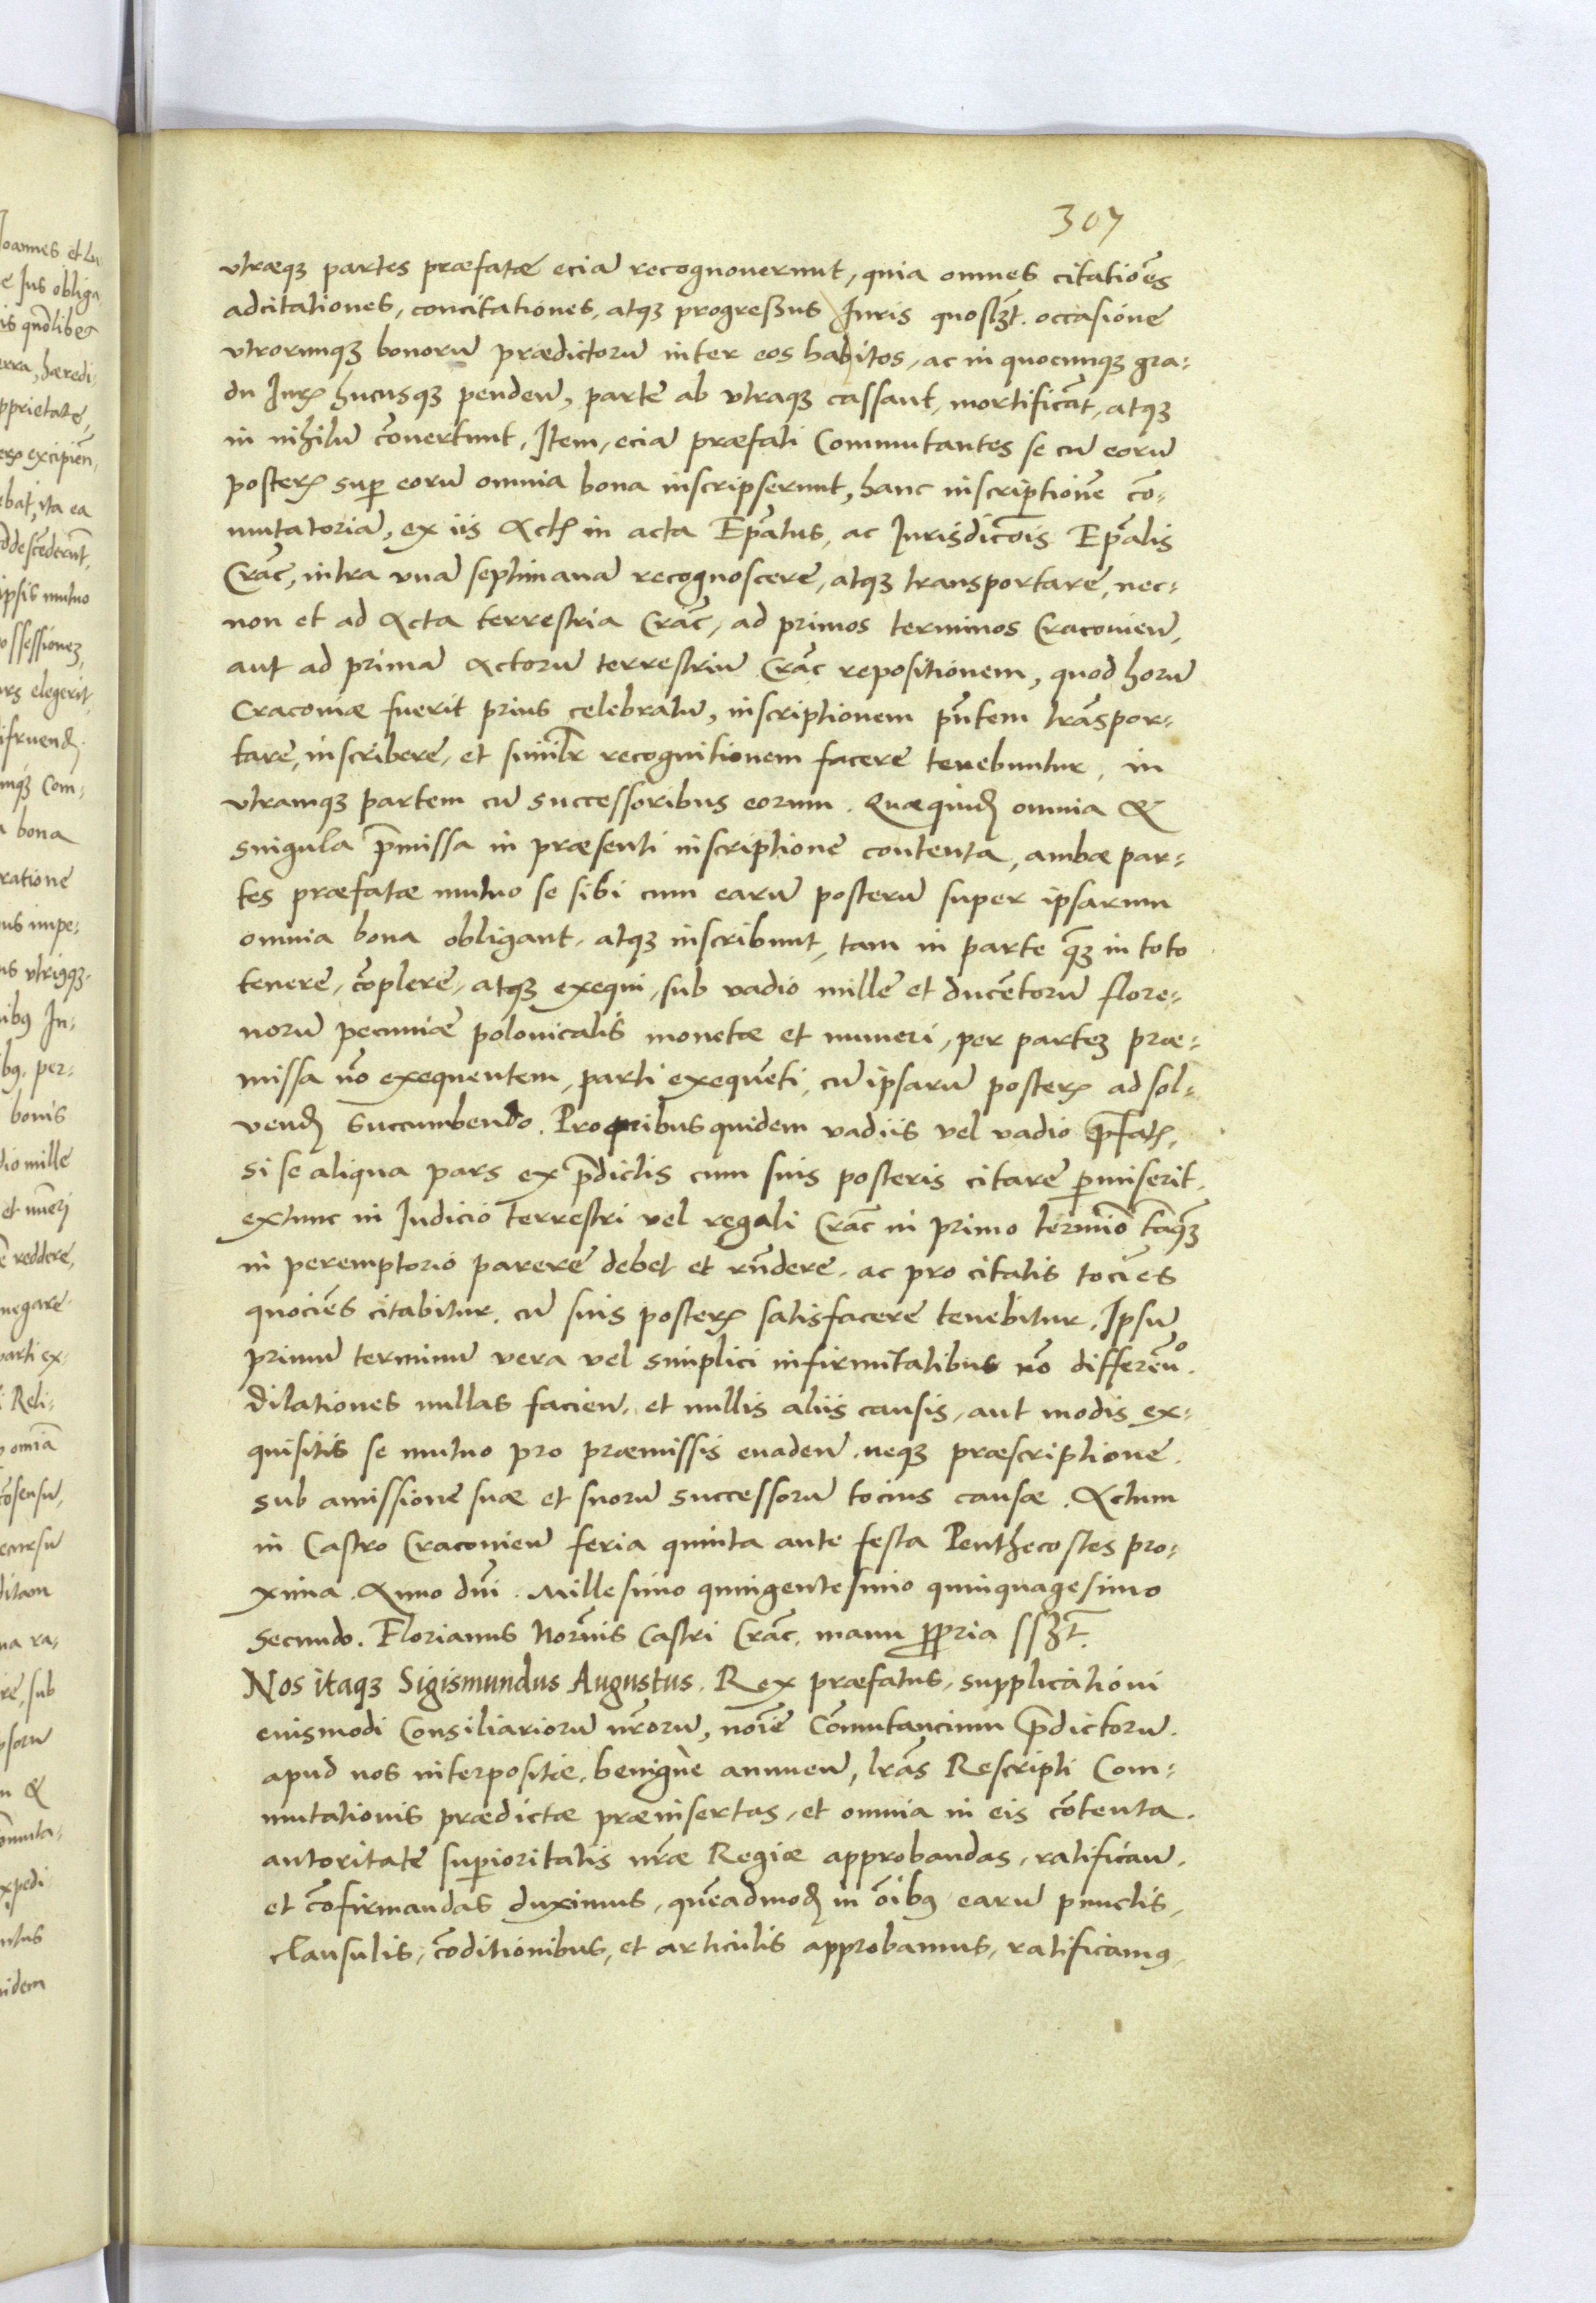 307
vtræq₃ partes præfatæ eciā recognouerunt, quia omnes citatiōes
adcitationes, concitationes, atq₃ progressus Juris quosl₃t. occasione
vtrorumq₃ bonorū prædictorū inter eos habitos, ac in quocunq₃ gra-
du Jur₃ hucusq₃ penden̄, parte ab vtraq₃ cassant, mortificāt, atq₃
in nihilū cōuertunt. Item, eciā præfati Commutantes se cū eorū
poster₃ sup̄ eorū omnia bona inscripserunt, hanc inscriptionē cō-
mutatoriā, ex iis Act₃ in acta Ep̄atus, ac Jurisdictōis Ep̄alis
Crāc, intra vnā septimanā recognoscere, atq₃ transportare, nec-
non et ad Acta terrestria Crāc, ad primos terminos Cracouien̄,
aut ad primā Actorū terrestriū Crāc repositionem, quod horū
Cracoviæ fuerit prius celebratū, inscriptionem pn̄tem trāspor-
tare, inscribere, et simil̄r recognitionem facere tenebuntur, in
vtramq₃ partem cū successoribus eorum. Quæquid₃ omnia &
singula p̄missa in præsenti inscriptione contenta, ambæ par-
tes præfatæ mutuo se sibi cum earū posterū super ipsarum
omnia bona obligant, atq₃ inscribunt, tam in parte q̄₃ in toto
tenere, cōplere, atq₃ exequi, sub vadio mille et ducētorū flore-
norū pecuniæ polonicalis monetæ et numeri, per parte₃ præ-
missa nō exequentem, parti exequēti, cū ipsarū poster₃ ad sol-
vend₃ succumbendo. Pro quibus quidem vadiis vel vadio p̄fat₃,
si se aliqua pars ex p̄dictis cum suis posteris citare p̄miserit,
extunc in Judicio Terrestri vel regali Crāc in primo termīo tāq̄₃
in peremptorio parere debet et rn̄dere, ac pro citatis tocies
quocies citabitur, cū suis poster₃ satisfacere tenebitur. Ipsū
primū terminū vera vel simplici infirmitatibus nō differēn̄o.
dilationes nullas facien̄, et nullis aliis causis, aut modis ex-
quisitis se mutuo pro præmissis euaden̄, neq₃ præscriptione
sub amissione suæ et suorū successorū tocius causæ. Actum
in Castro Cracouien̄ feria quinta ante festa Penthecostes pro-
xima. Anno dn̄i. Millesimo quingentesimo quinquagesimo
secundo. Florianus Nor̄uis Castri Crāc, manu p̄pria ss₃t.
Nos itaq₃ Sigismundus Augustus. Rex præfatus, supplicationi
eiusmodi Consiliariorū nr̄orū, noīe Cōmutancium p̄dictorū.
apud nos interpositæ, benignè annuen̄, lr̄as Rescripti Com-
mutationis prædictæ præinsertas, et omnia in eis cōtenta.
autoritate sup̄ioritatis nr̄æ Regiæ approbandas, ratifican̄.
et cōfirmandas duximus, quēadmod₃ in ōib₉ earū punctis,
clausulis, cōditionibus, et articulis approbamus, ratificam₉